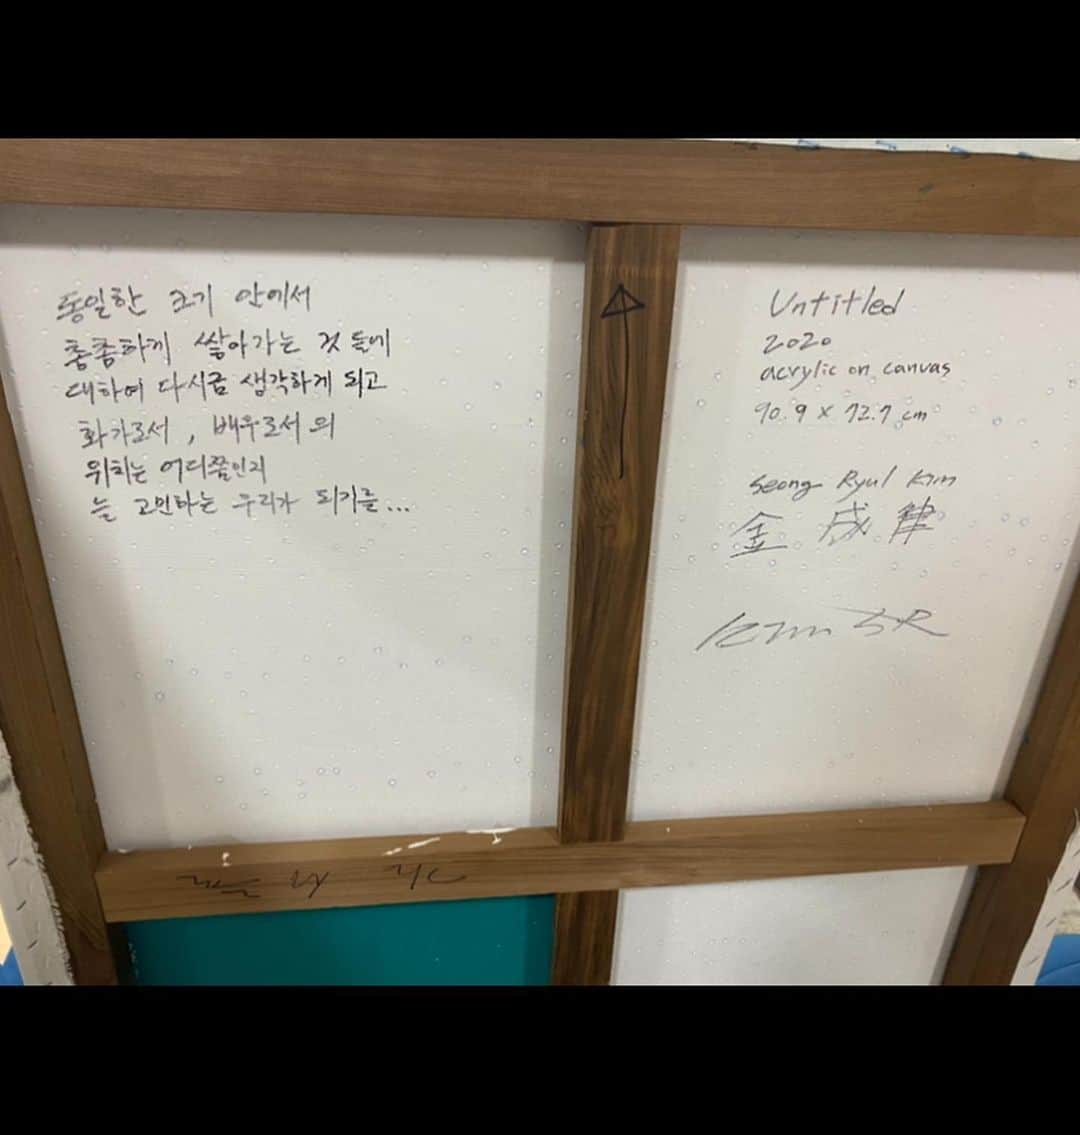 동일한 크기 안에서
촘촘하게 쌓아가는 것들에
대하여 다시금 생각하게 되고
화가로서, 배우로서의
위치는 어디쯤인지
늘 고민하는 우리가 되기를...
Untitled
2020
acrylic on canvas
90.9 x 72.7 cm
Seong Ryul Kim
金 成 律
Kim SR